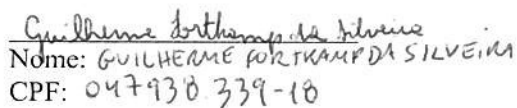 Guilherme Fortkamp da Silveira
Nome: GUILHERME FORTKAMP DA SILVEIRA
CPF: 047938.339-18